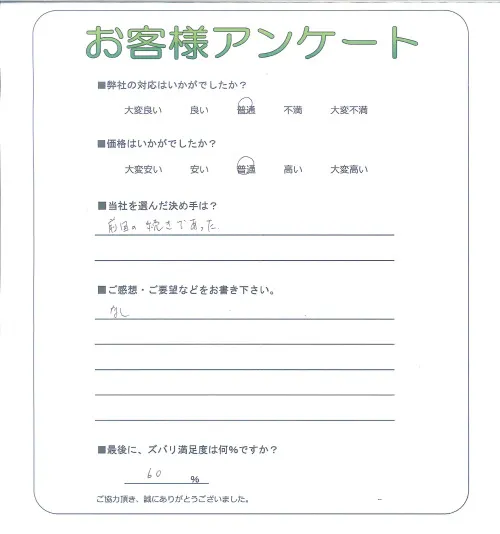 お客様アンケート
■弊社の対応はいかがでしたか？
大変良い 良い 普通 不満 大変不満
■価格はいかがでしたか？
大変安い 安い 普通 高い 大変高い
■当社を選んだ決め手は？
前回の続きであった.
■ご感想・ご要望などをお書き下さい。
なし
■最後に、ズバリ満足度は何%ですか？
60 %
ご協力頂き、誠にありがとうございました。